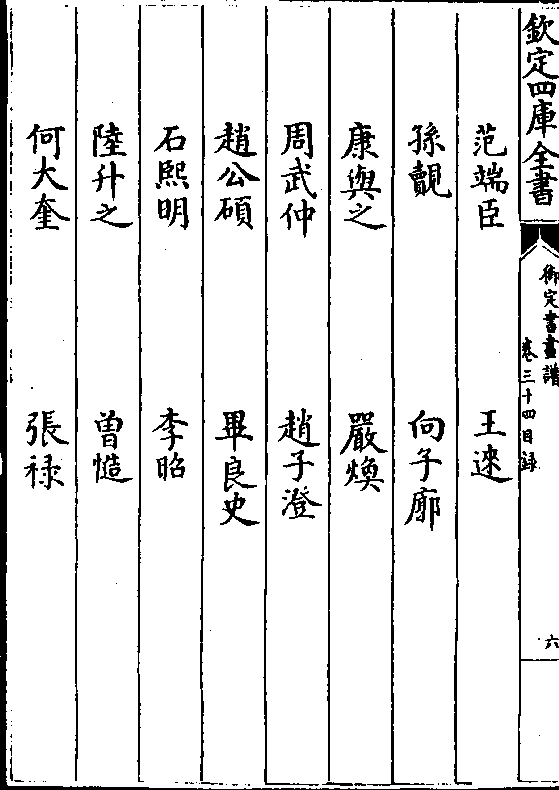 欽定四庫全書
御定書畫譜
卷三十四目録
六
范端臣 王逨
孫覿 向子廓
康與之 嚴煥
周武仲 趙子澄
趙公碩 畢良史
石熙明 李昭
陸升之 曽慥
何大奎 張禄